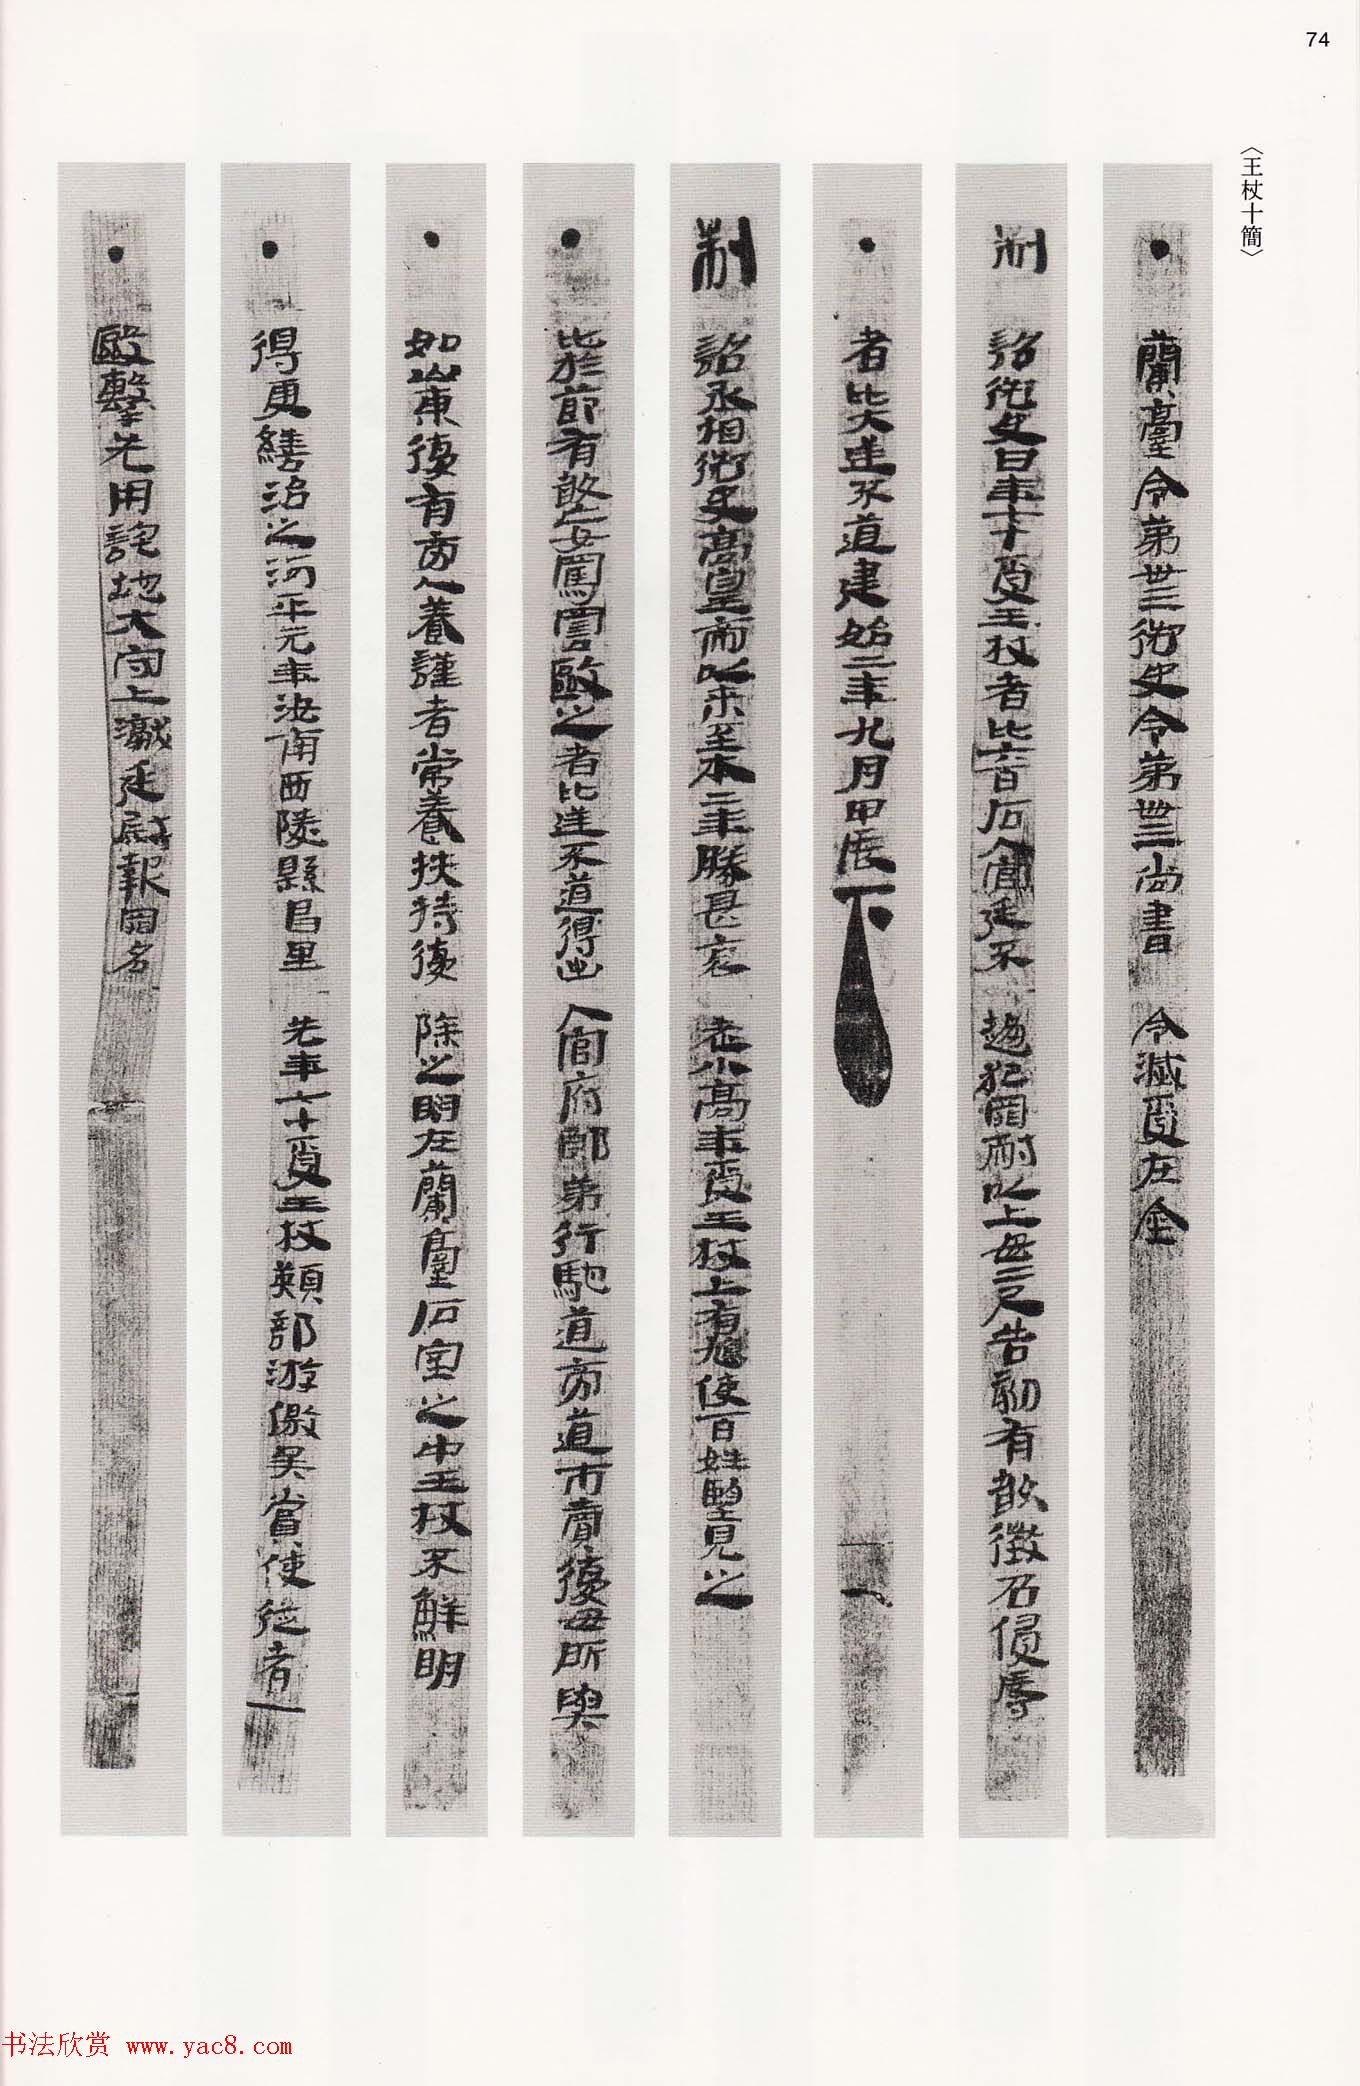 74
〈王杖十簡〉
・蘭臺令第卅三御史令第卌三尚書令滅受在金
制詔御史曰年七十受王杖者比六百石入官廷不趨犯罪耐以上毋二尺告劾有敢徵召侵辱
・者比大逆不道建始二年九月甲辰下
制詔丞相御史高皇帝以來至本二年勝甚哀老小高年受王杖上有鳩使百姓望見之
・比於節有敢妄罵詈毆之者比逆不道得出入官府郎第行馳道旁道市賣復毋所與
・如山東復有旁人養謹者常養扶持復除之明在蘭臺石室之中王杖不鮮明
・得更繕治之河平元年汝南西陵縣昌里先年七十受王杖熲部游徼吳賞使從者
・毆擊先用詫地大守上讞廷尉報罪名
书法欣赏 www.yac8.com